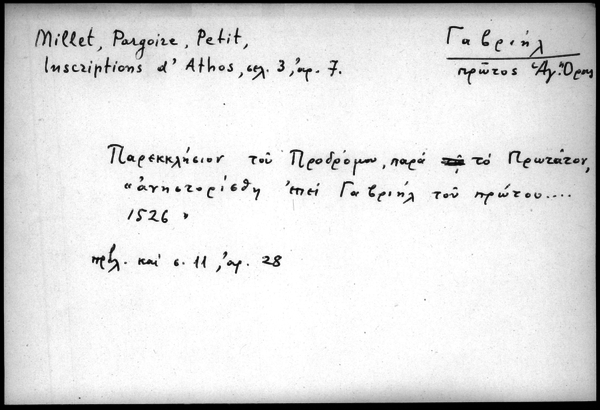 Millet, Pargoire, Petit,
Inscriptions d' Athos, σελ. 3, ἀρ. 7.
Γαβριήλ
πρῶτος Ἁγ. Ὄρους
Παρεκκλήσιον τοῦ Προδρόμου, παρὰ τὸ Πρωτᾶτον,
«ἀνηστορίσθη ἐπεί Γαβριήλ τοῦ πρώτου....
1526»
πρβλ. καί σ. 11, ἀρ. 28